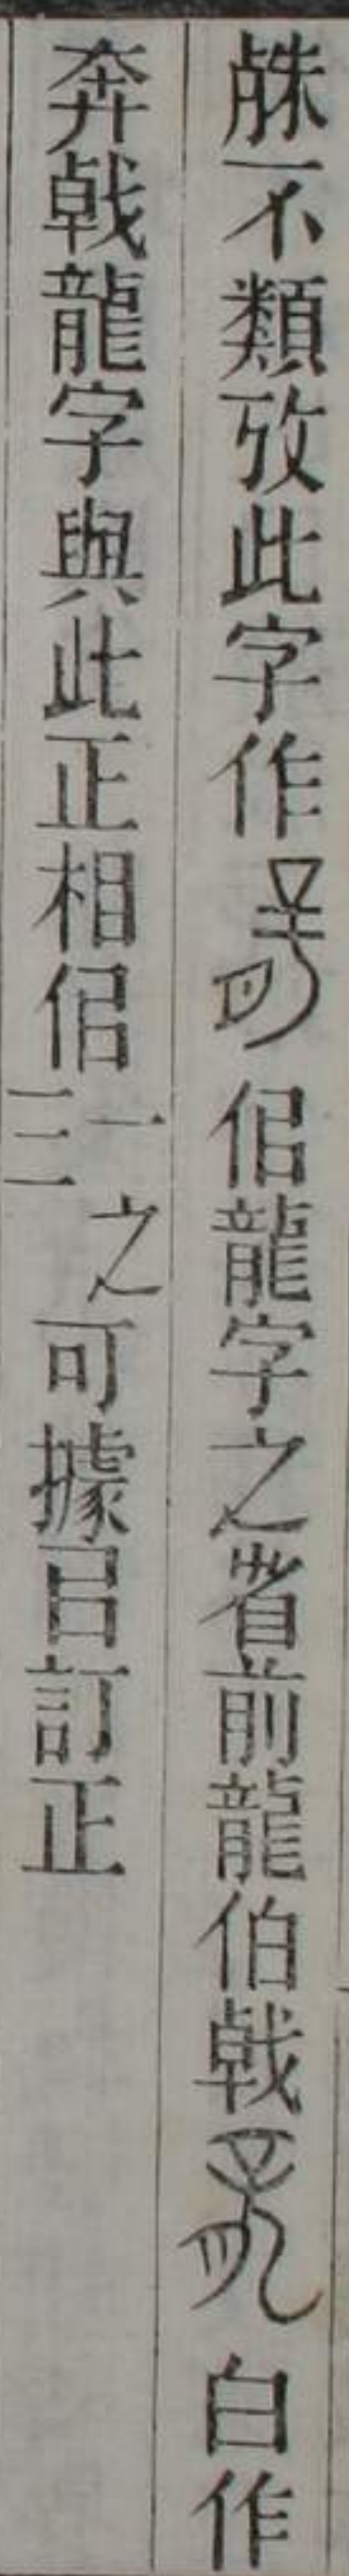 殊不類攷此字作佀龍字之省前龍伯戟白作
奔戟龍字與此正相佀一之三可據㠯訂正